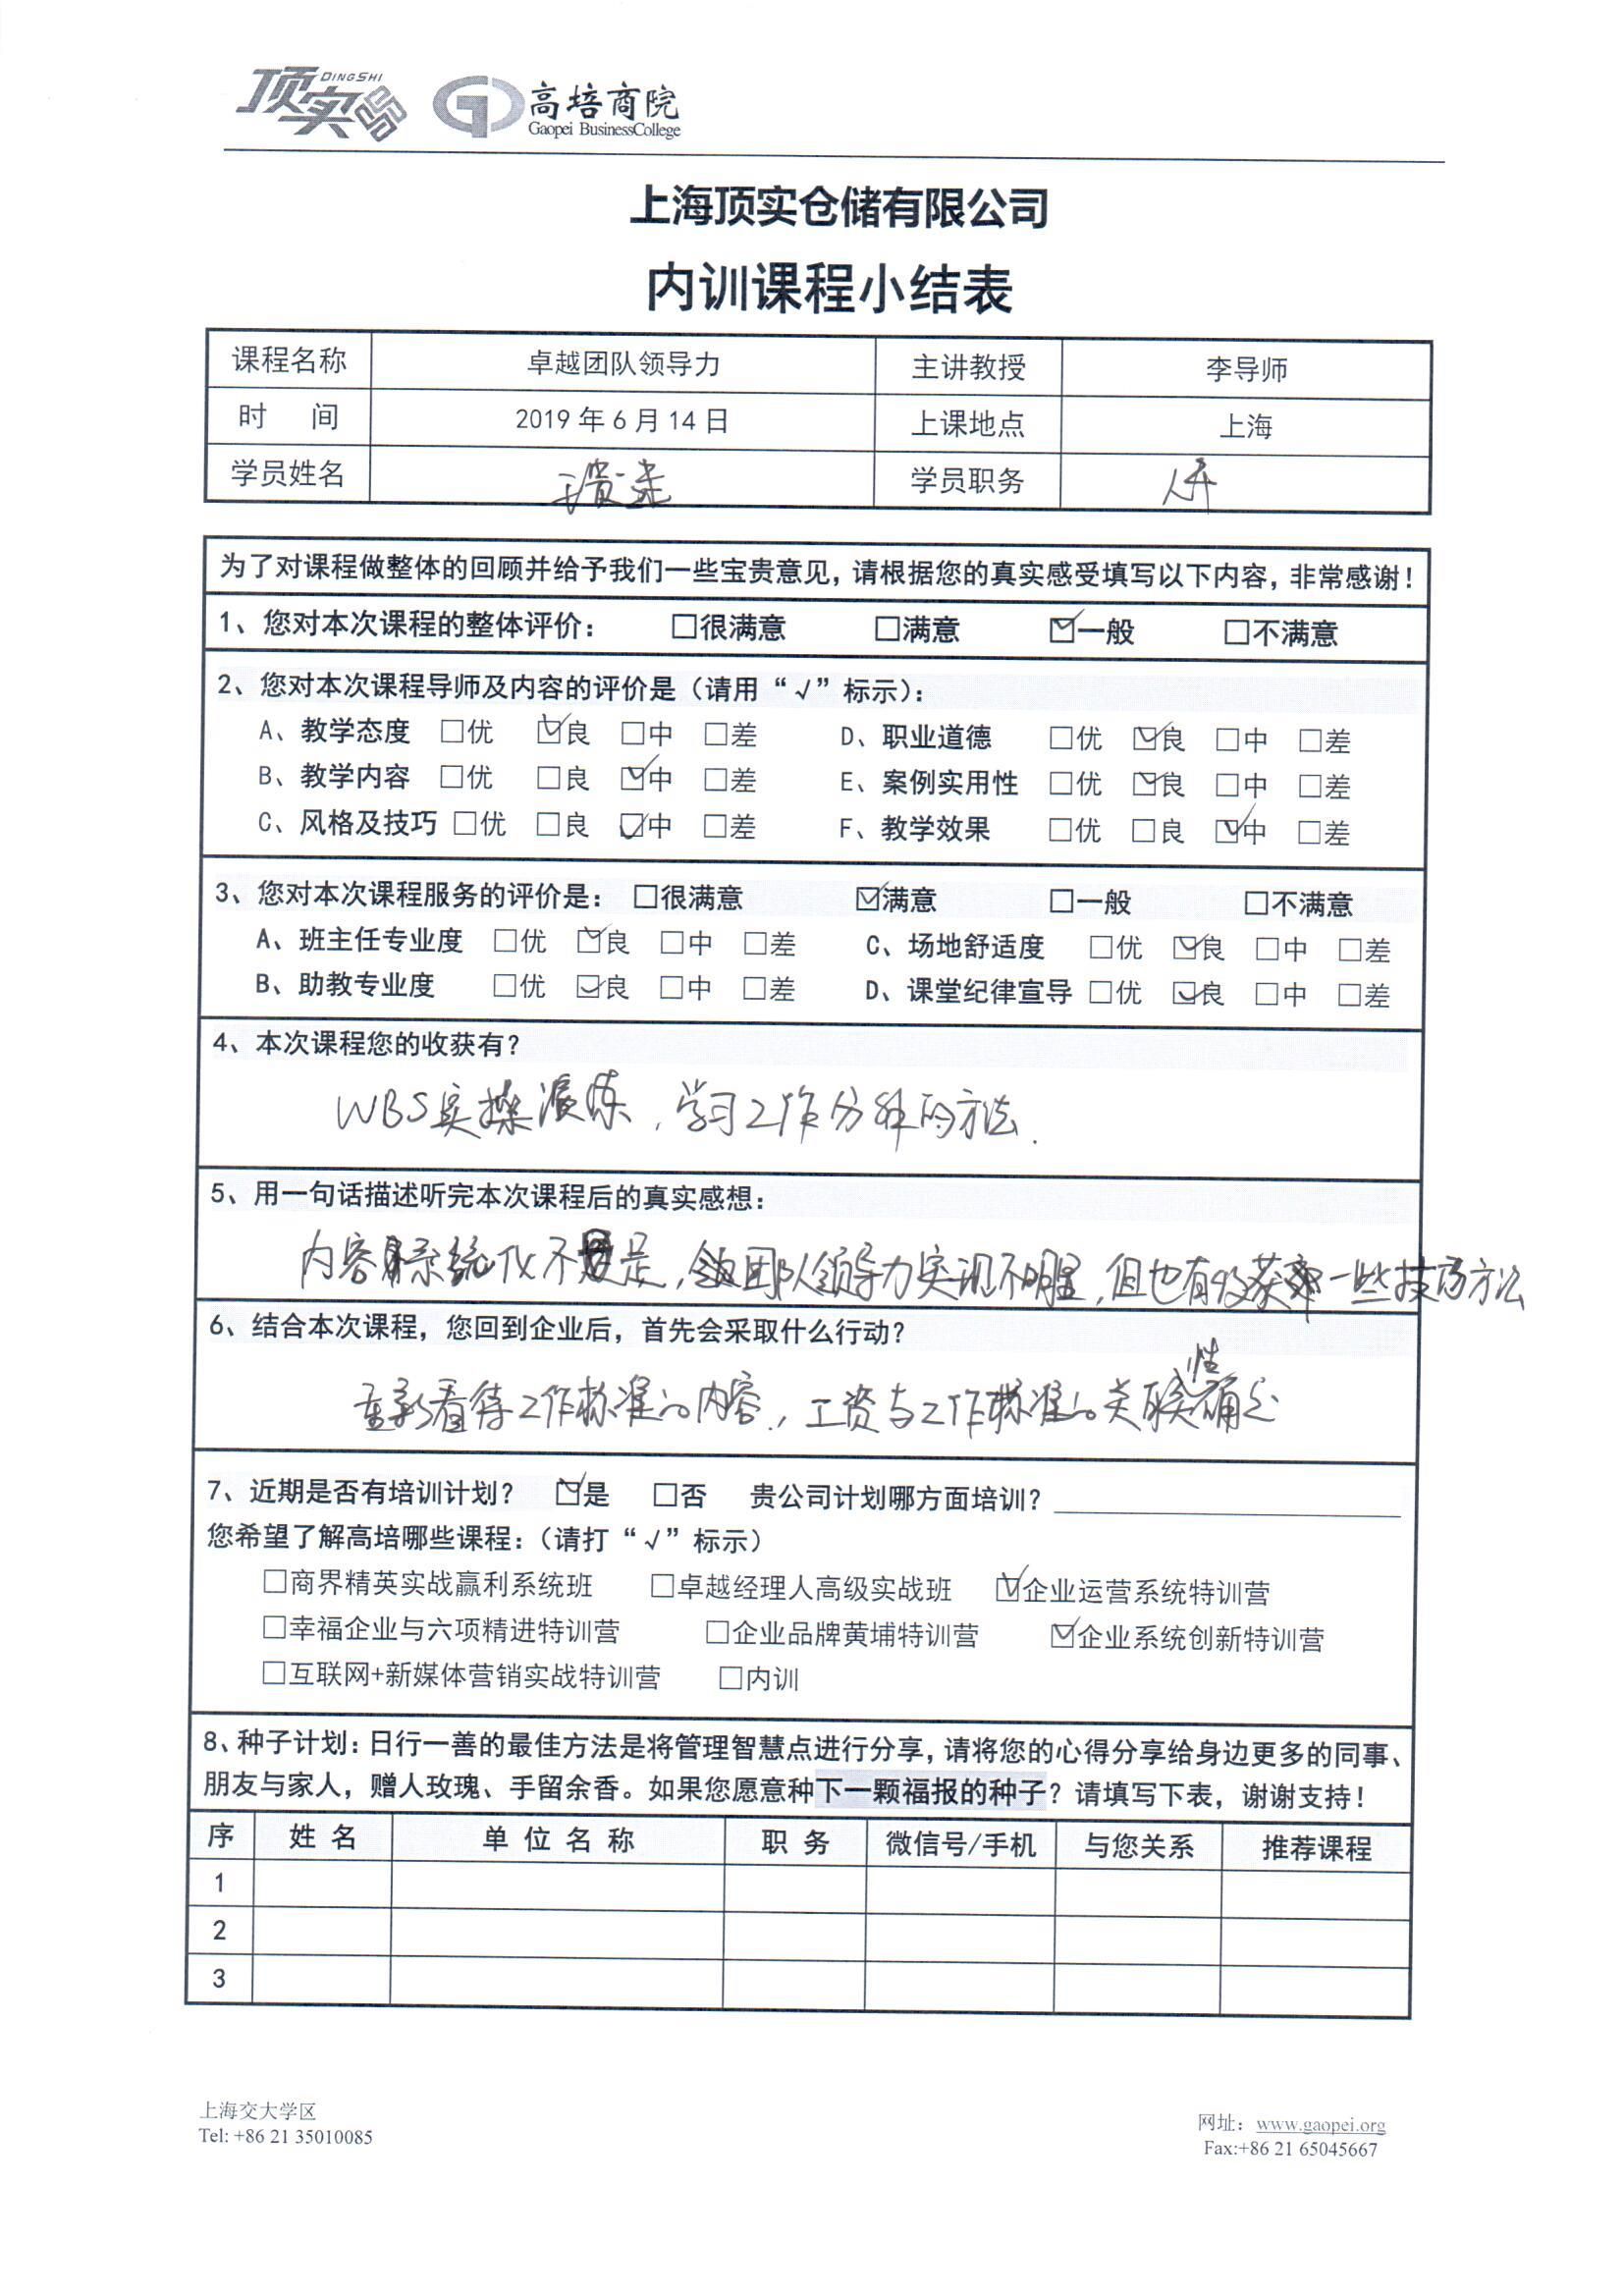 顶实 DINGSHI 高培商院
Gaopei BusinessCollege
上海顶实仓储有限公司
内训课程小结表
课程名称 卓越团队领导力 主讲教授 李导师
时 间 2019 年 6 月 14 日 上课地点 上海
学员姓名 学员职务
为了对课程做整体的回顾并给予我们一些宝贵意见，请根据您的真实感受填写以下内容，非常感谢！
1、您对本次课程的整体评价： □很满意 □满意 ☑一般 □不满意
2、您对本次课程导师及内容的评价是（请用“√”标示）：
A、教学态度 □优 ☑良 □中 □差 D、职业道德 □优 ☑良 □中 □差
B、教学内容 □优 □良 ☑中 □差 E、案例实用性 □优 ☑良 □中 □差
C、风格及技巧 □优 □良 ☑中 □差 F、教学效果 □优 □良 ☑中 □差
3、您对本次课程服务的评价是： □很满意 ☑满意 □一般 □不满意
A、班主任专业度 □优 ☑良 □中 □差 C、场地舒适度 □优 ☑良 □中 □差
B、助教专业度 □优 ☑良 □中 □差 D、课堂纪律宣导 □优 ☑良 □中 □差
4、本次课程您的收获有？
WBS实操演练，学习工作分解的方法.
5、用一句话描述听完本次课程后的真实感想：
内容系统化不足，团队领导力实现不明显，但也有收获一些技巧方法
6、结合本次课程，您回到企业后，首先会采取什么行动？
重新看待工作标准的内容，工资与工作标准的关联性确定
7、近期是否有培训计划？ ☑是 □否 贵公司计划哪方面培训？
您希望了解高培哪些课程：（请打“√”标示）
□商界精英实战赢利系统班 □卓越经理人高级实战班 ☑企业运营系统特训营
□幸福企业与六项精进特训营 □企业品牌黄埔特训营 ☑企业系统创新特训营
□互联网+新媒体营销实战特训营 □内训
8、种子计划：日行一善的最佳方法是将管理智慧点进行分享，请将您的心得分享给身边更多的同事、
朋友与家人，赠人玫瑰、手留余香。如果您愿意种下一颗福报的种子？请填写下表，谢谢支持！
序 姓 名 单 位 名 称 职 务 微信号/手机 与您关系 推荐课程
1
2
3
上海交大学区 网址：www.gaopei.org
Tel: +86 21 35010085 Fax:+86 21 65045667